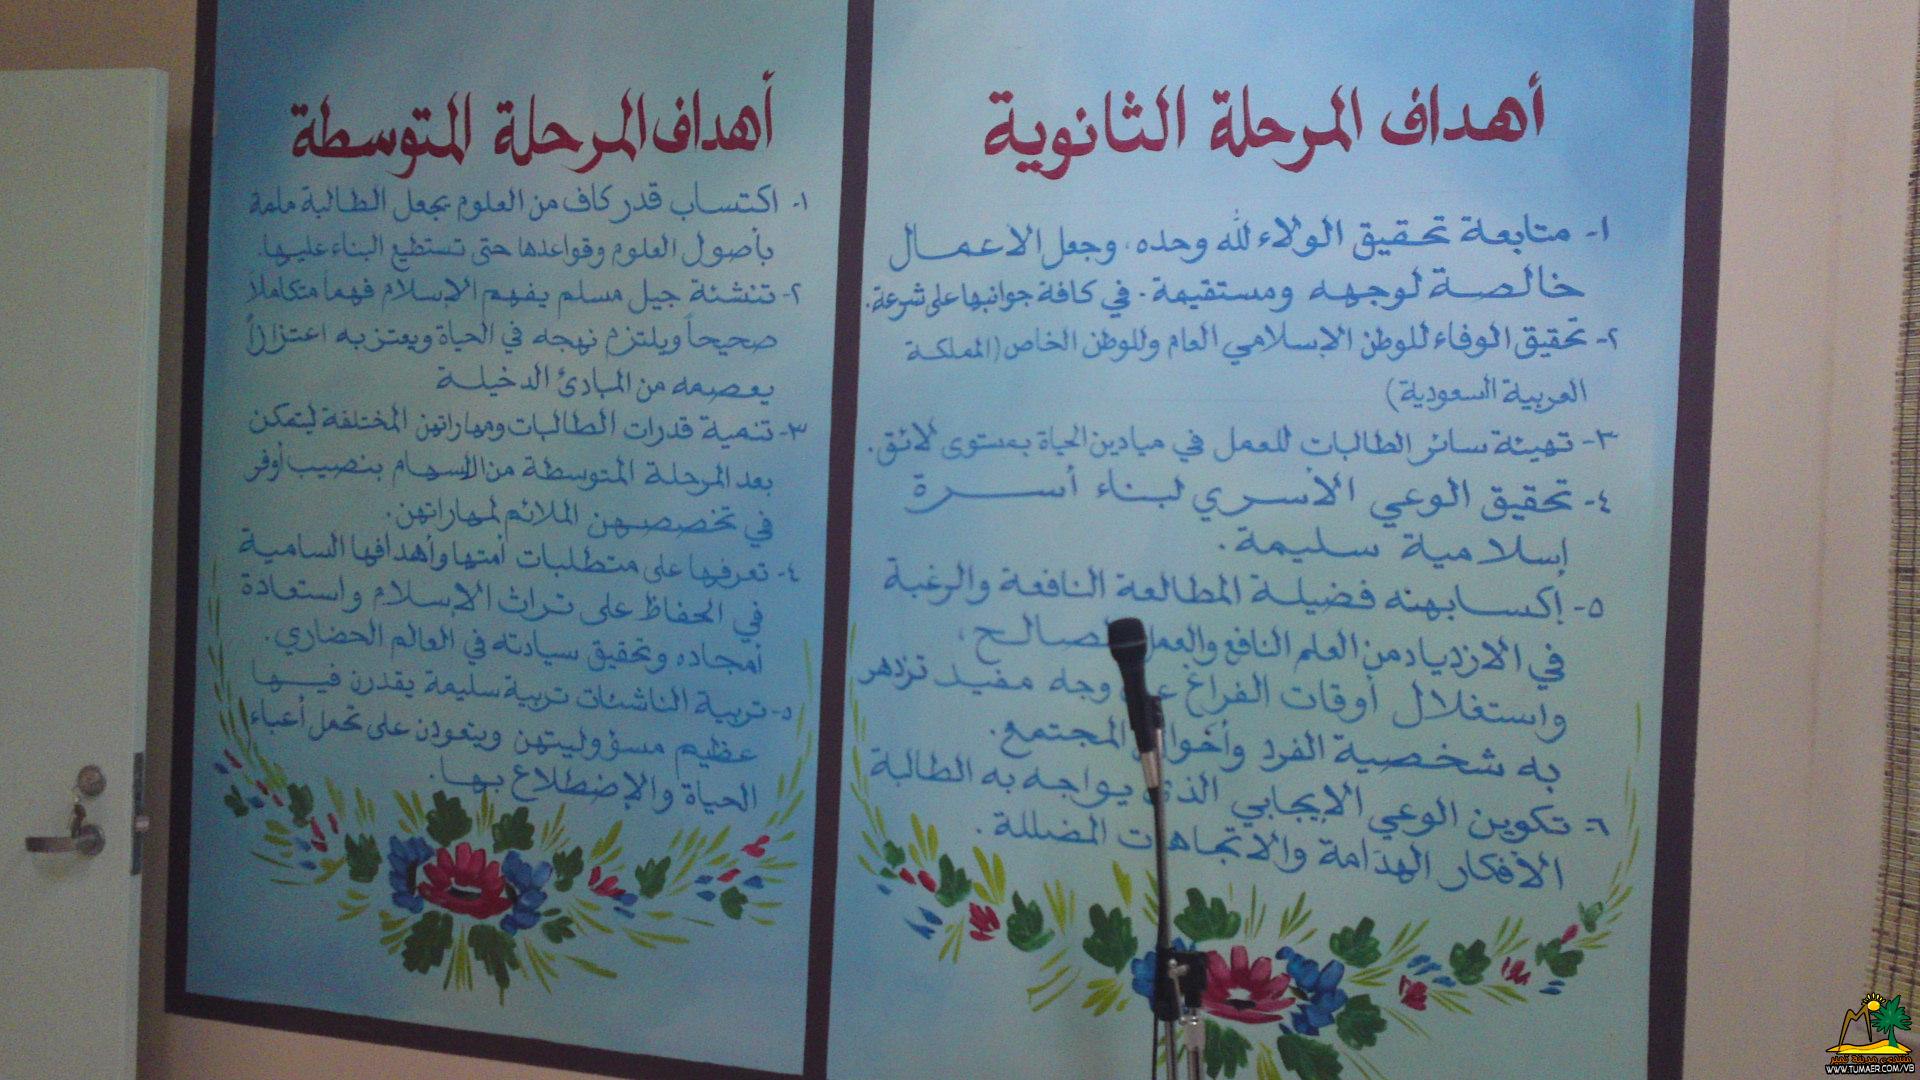 أهداف المرحلة الثانوية
١- متابعة تحقيق الولاء لله وحده، وجعل الاعمال
خالصة لوجهه ومستقيمة. في كافة جوانبها على شرعة.
٢- تحقيق الوفاء للوطن الإسلامي العام وللوطن الخاص (المملكة
العربية السعودية)
٣- تهيئة سائر الطالبات للعمل في ميادين الحياة بمستوى لائق.
٤- تحقيق الوعي الأسري لبناء أسرة
إسلامية سليمة.
٥- إكسابهنه فضيلة المطالعة النافعة والرغبة
في الازدياد من العلم النافع والعمل لصالح،
واستغلال أوقات الفراغ وجه مفيد تزدهر
به شخصية الفرد وأخوال المجتمع.
٦- تكوين الوعي الإيجابي الذي يواجه به الطالبة
الأفكار الهدامة والاتجاهات المضللة.
أهداف المرحلة المتوسطة
١- اكتساب قدر كاف من العلوم يجعل الطالبة ملمة
بأصول العلوم وقواعدها حتى تستطيع البناء عليها.
٢- تنشئة جيل مسلم يفهم الإسلام فهماً متكاملاً
صحيحاً ويلتزم نهجه في الحياة ويعتز به اعتزازاً
يعصمه من المبادئ الدخيلة
٣- تنمية قدرات الطالبات ومهاراتهن المختلفة ليتمكن
بعد المرحلة المتوسطة من الاسهام بنصيب أوفر
في تخصصهن الملائم لمهاراتهن.
٤- تعرفها على متطلبات أمتها وأهدافها السامية
في الحفاظ على تراث الإسلام واستعادة
أمجاده وتحقيق سيادته في العالم الحضاري.
٥- تربية الناشئات تربية سليمة يقدرن فيها
عظيم مسؤوليتهن ويتعودن على تحمل أعباء
الحياة والإضطلاع بها.
WWW.TUMAER.COM/VB